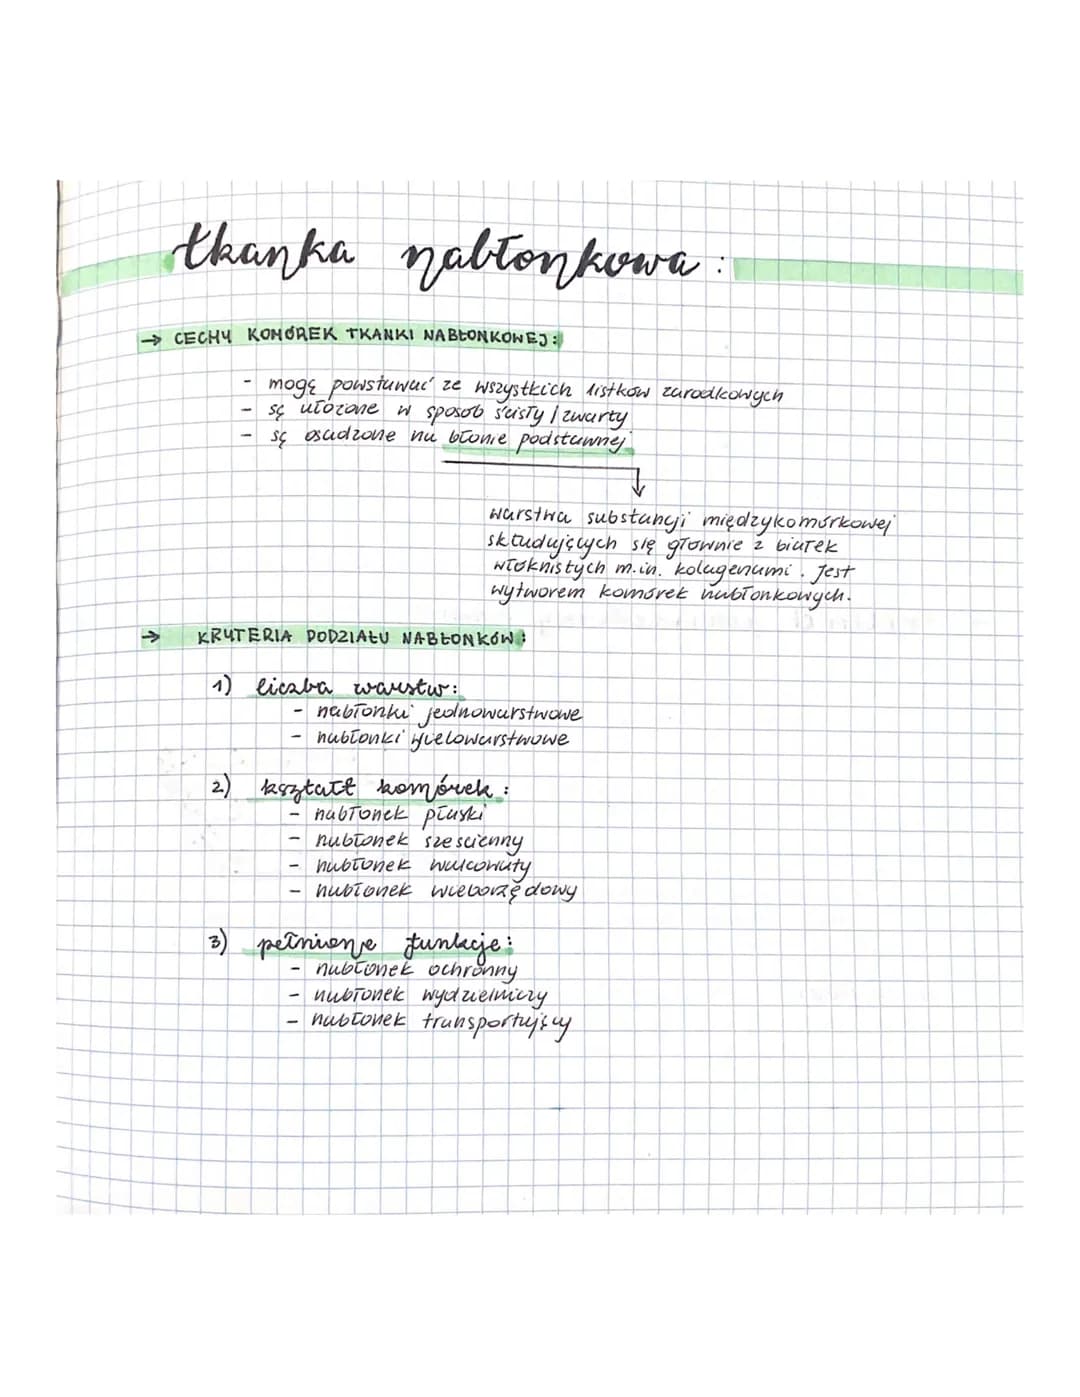 tkanka nabłonkowa:
→ CECHY KOMÓREK TKANKI NABŁONKOWEJ:
- mogą powstawać ze wszystkich listków zarodkowych
- są ułożone w sposób ścisły / zwarty
- są osadzone na błonie podstawnej
warstwa substancji międzykomórkowej
składających się głównie z białek
włóknistych m.in. kolagenami. Jest
wytworem komórek nabłonkowych.
→ KRYTERIA PODZIAŁU NABŁONKÓW:
1) liczba warstw:
- nabłonki jednowarstwowe
- nabłonki wielowarstwowe
2) kształt komórek:
- nabłonek płaski
- nabłonek sześcienny
- nabłonek walcowaty
- nabłonek wielorzędowy
3) pełnione funkcje:
- nabłonek ochronny
- nabłonek wydzielniczy
- nabłonek transportujący